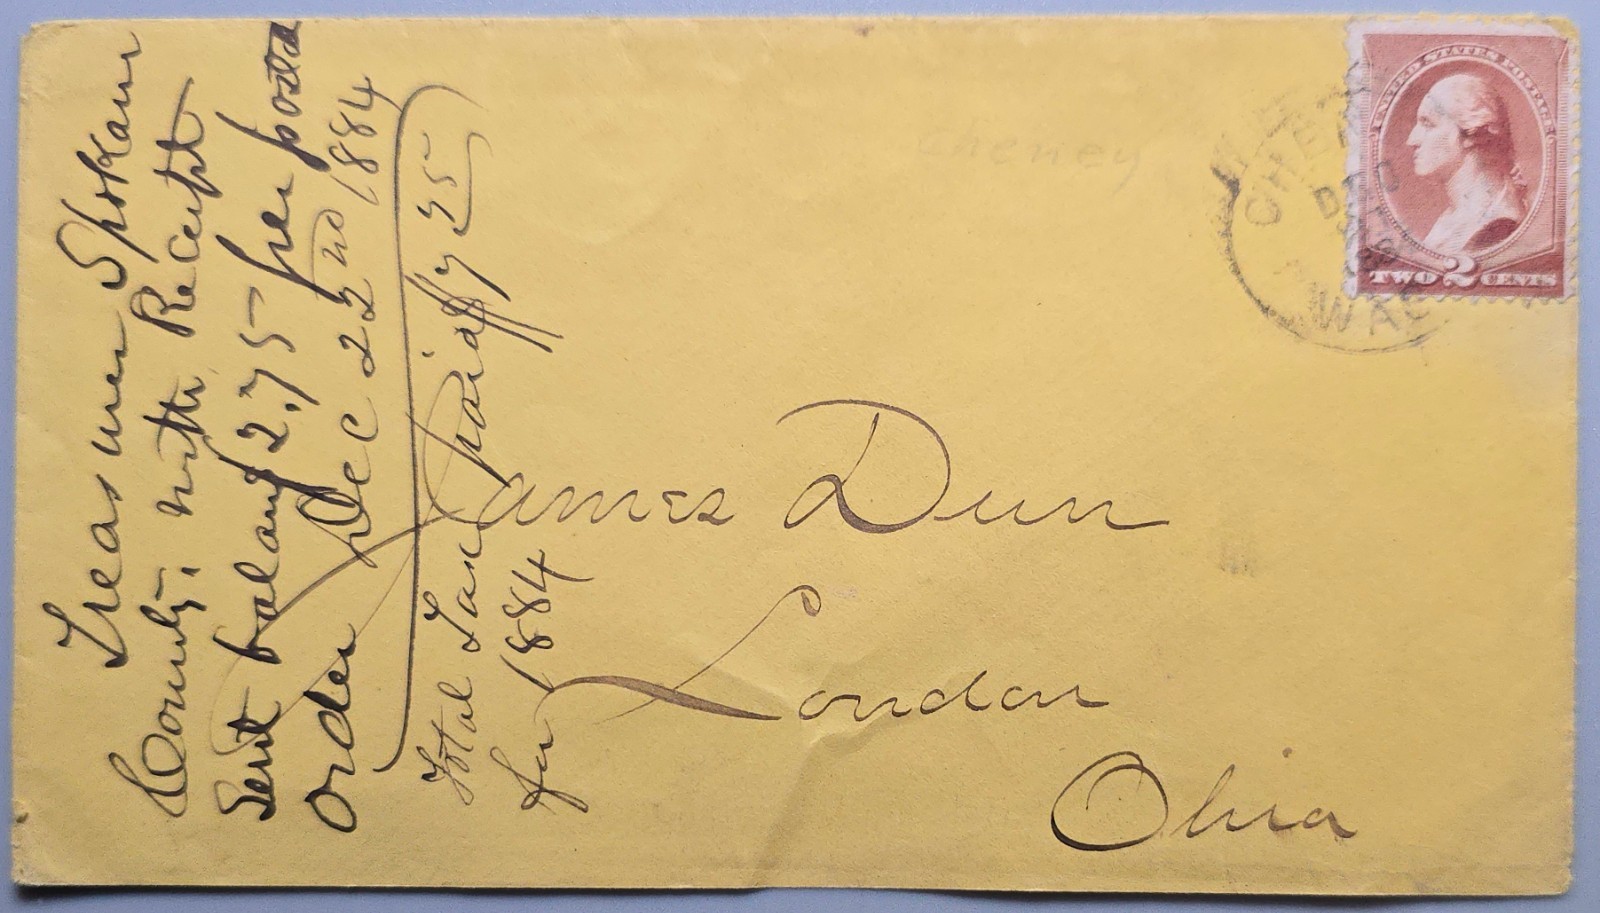 Treasurer Spokane
County, with Receipt
Sent balance 2.75 per postal
order Dec 22nd 1884
Total Tax
for 1884
Cheney
UNITED STATES POSTAGE
TWO 2 CENTS
CHENEY
DEC
WAS
James Dun
London
Ohio